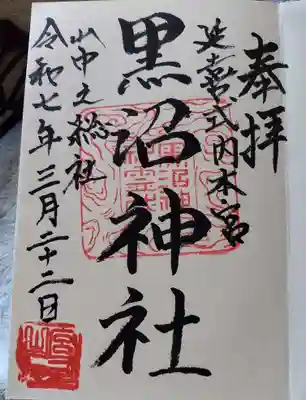 奉拝
延喜式内本宮
黒沼神社
山中之総社
令和七年三月二十二日